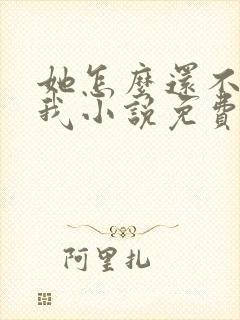 她怎麼還不
我小說免費
阿里扎